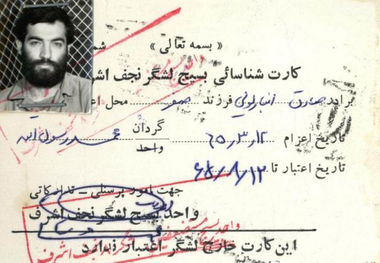 « بسمه تعالی » شما
کارت شناسائی بسیج لشگر نجف اشر
برادر صادق فرزند صفر محل اعزا
تاریخ اعزام ۶۵/۳/۱۲ گردان واحد محمد رسول اله
تاریخ اعتبار تا ۶۵/۸/۱۲
جهت امور پرسنلی - تدارکاتی
واحد بسیج لشگر نجف اشرف
این کارت خارج لشگر اعتبار ندارد